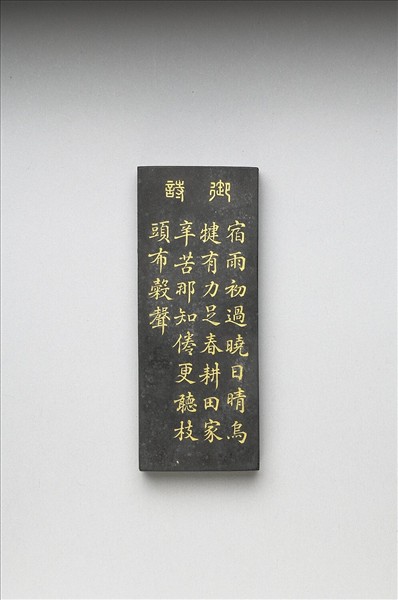 御詩
宿雨初過曉日晴烏
犍有力足春耕田家
辛苦那知倦更聽枝
頭布穀聲